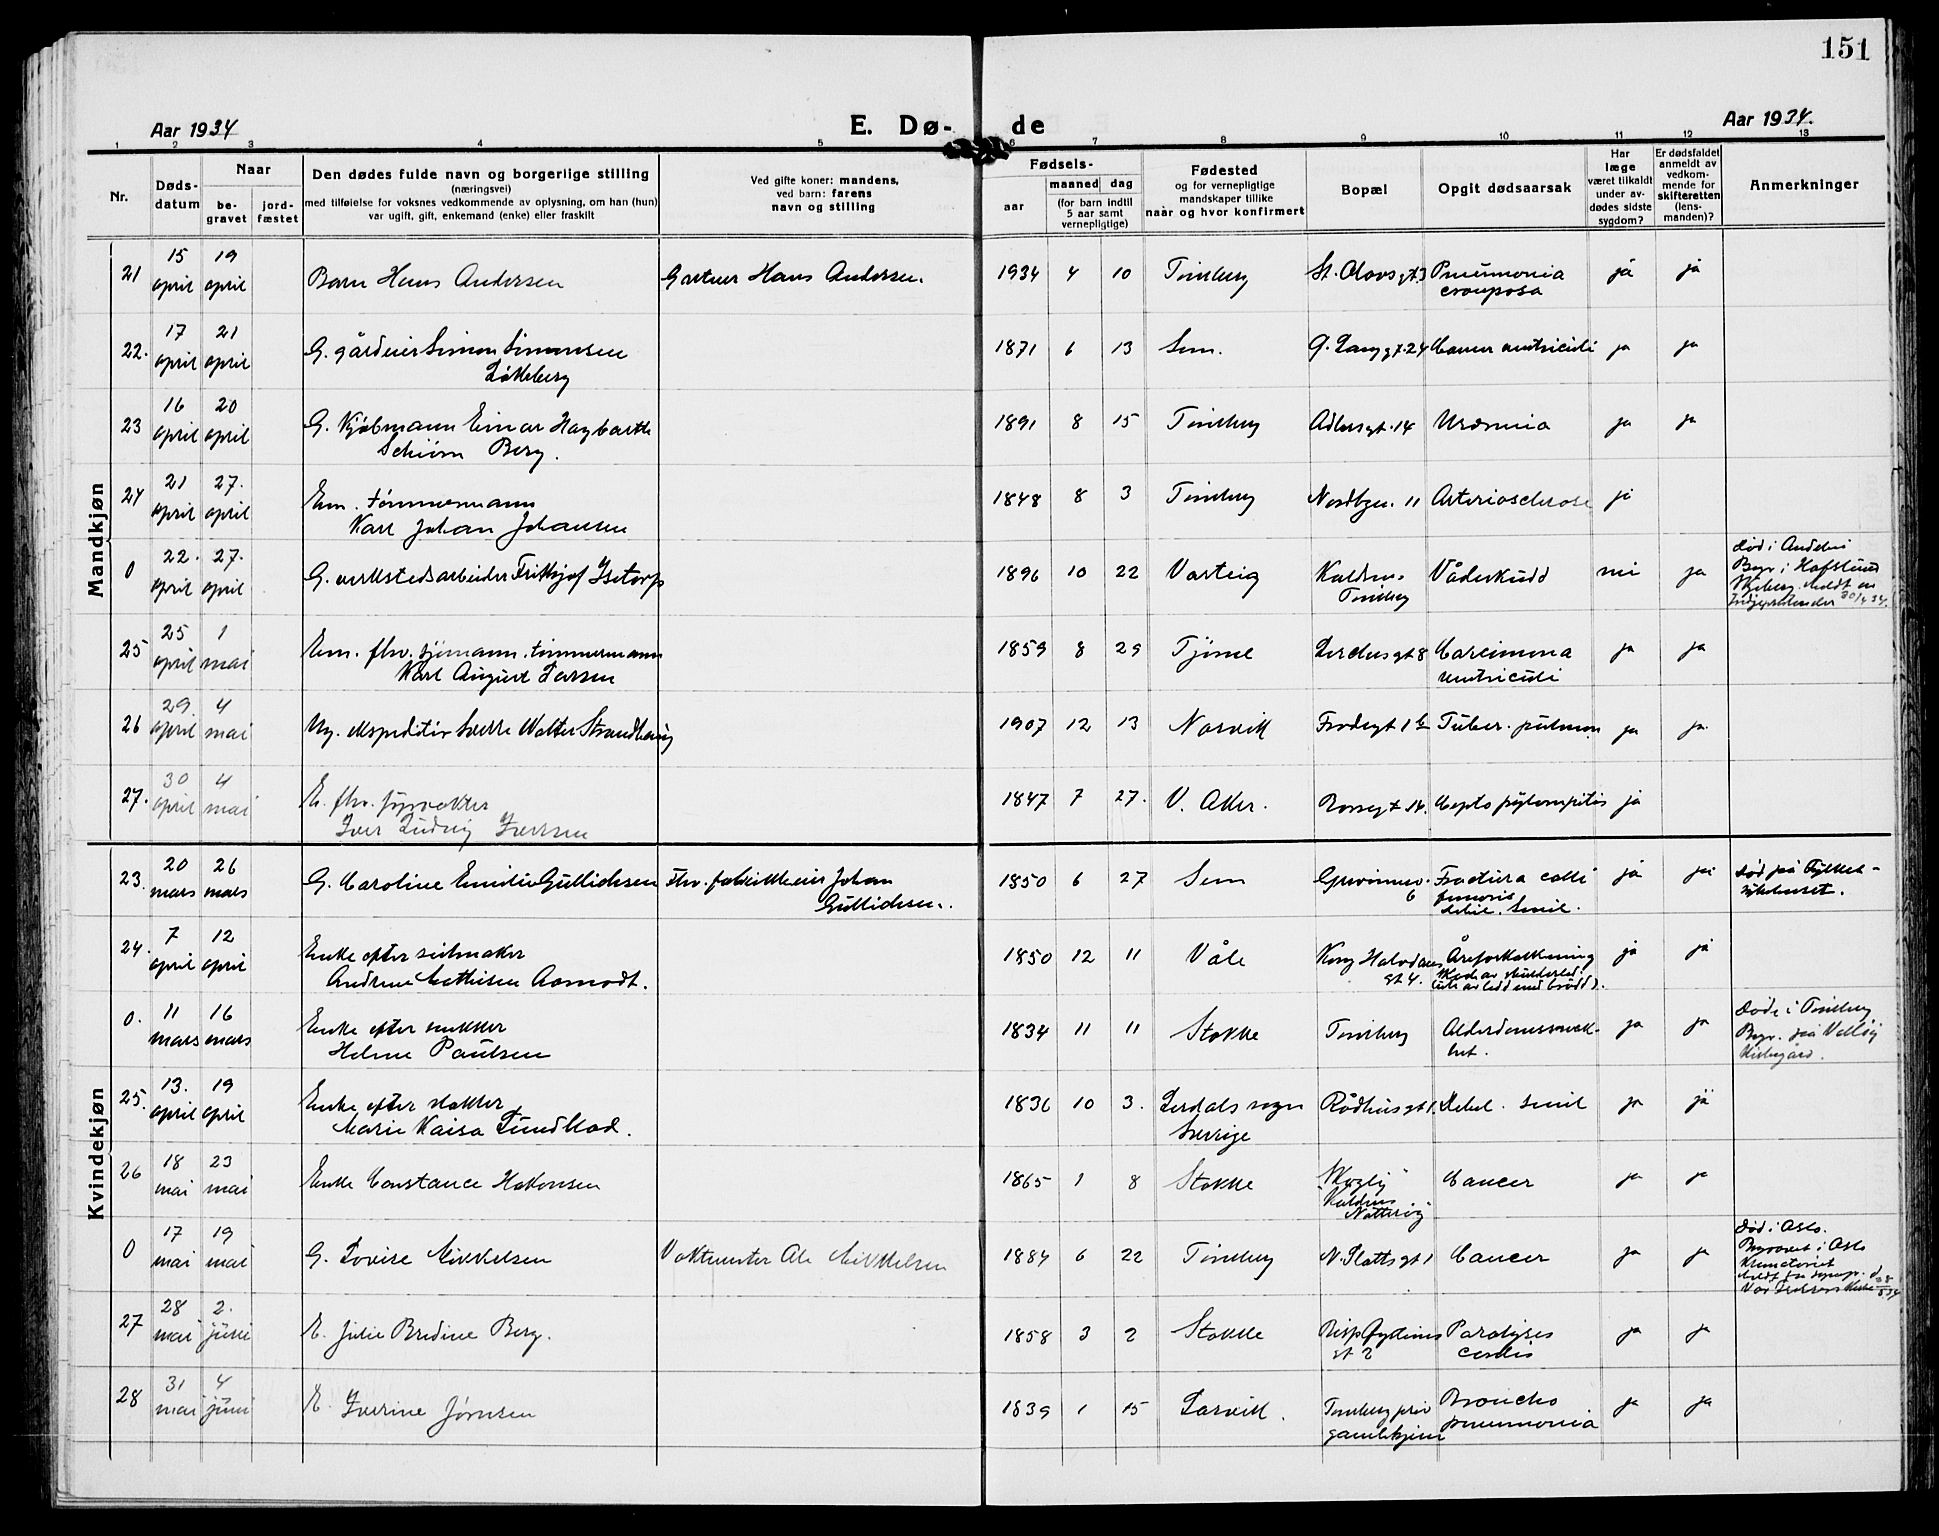 151
Aar 1934
E. Dø-
de
Aar 1934.
1 2 3 4 5 6 7 8 9 10 11 12 13
Nr.
Døds-
datum
Naar
be-
gravet
jord-
fæstet
Den dødes fulde navn og borgerlige stilling
(næringsvei)
med tilføielse for voksnes vedkommende av oplysning, om han (hun)
var ugift, gift, enkemand (enke) eller fraskilt
Ved gifte koner: mandens,
ved barn: farens
navn og stilling
Fødsels-
aar
maaned
dag
(for barn indtil
5 aar samt
vernepligtige)
Fødested
og for vernepligtige
mandskaper tillike
naar og hvor konfirmert
Bopæl
Opgit dødsaarsak
Har
læge
været tilkaldt
under av-
dødes sidste
sygdom?
Er dødsfaldet
anmeldt av
vedkom-
mende for
skifteretten
(lens-
manden)?
Anmerkninger
Mandkjøn
21 15 april 19 april Barn Hans Andersen Gartner Hans Andersen. 1934 4 10 Tønsberg St. Olavsgt. 3 Pneumonia
crouposa ja ja
22. 17 april 21 april G. gårdeier Simon Simonsen
Løkeberg 1871 6 13 Sem. G. Langgt. 24 Cancer ventriculi ja ja
23 16 april 20 april G. Kjøbmann Einar Hagbarth
Schiørn Berg. 1891 8 15 Tønsberg Adlersgt. 14 Uræmia ja ja
24 21 april 27. april Em. tømmermann
Karl Johan Johansen 1848 8 3 Tønsberg Nordbyen. 11 Arteriosclerose ja
0 22. april 27. april G. verkstedsarbeider Frithjof Isetorp 1896 10 22 Varteig Kaldnes
Tønsberg Vådeskudd nei ja død i Andebu
Begr. i Hafslund
Skjeberg. Meldt av
30/4 34.
25 25 april 1 mai Em. fhv. sjømann. tømmermann
Karl August Larsen 1859 8 29 Tjøme gt 8 Carcinoma
ventriculi ja ja
26 29. april 4 mai Ug. ekspeditør Sverre Walter Strandberg 1907 12 13 Narvik Frodegt 1 b Tuber. pulmon ja ja
27. 30 april 4 mai E. fhv. fyrvokter
Iver Ludvig Iversen 1847 7 27. V. Aker. gt 14. ja
Kvindekjøn
23. 20 mars 26 mars G. Caroline Emilie Gullichsen Fhv. fabrikkeier Johan
Gullichsen. 1850 6 27 Sem 6 Fractura colli
femoris
debil. senil. ja ja død på Fylkes-
sykehuset.
24. 7 april 12 april Enke efter seilmaker
Andrine Mathisen Aamodt. 1850 12 11 Våle Kong Halvdans
gt 4. Åreforkalkning ja ja
0. 11 mars 16 mars Enke efter snekker
Helene Paulsen 1834 11 11 Stokke Tønsberg Alderdomssvak-
het. ja ja Døde i Tønsberg
Begr. på Velløy
Kirkegård.
25. 13. april 19 april Enke efter slakter
Marie Kaisa Lundblad. 1836 10 3. Lerdals sogn
Sverrige Rådhusgt 1. Debil. senil ja ja
26 18 mai 23 mai Enke Constance Hakonsen 1865 1 8 Stokke "Skogly"
Kaldnes
Nøtterøy Cancer ja ja
0 17 mai 19 mai G. Lovise Mikkelsen Vaktmester Ole Mikkelsen 1884 6 22 Tønsberg N. Slottsgt 1 Cancer ja ja død i Oslo.
Begravet i Oslo
Krematoriet
27 28 mai 2. juni E. Julie Bredine Berg. 1858 3 2 Stokke Bisp Øysteins
gt 2 Paralysis
cordis ja ja
28 31 mai 4 juni E. Iverine Jørnsen 1839 1 15 Larvik. Tønsberg priv
gamlehjem Broncho
pneumonia ja ja